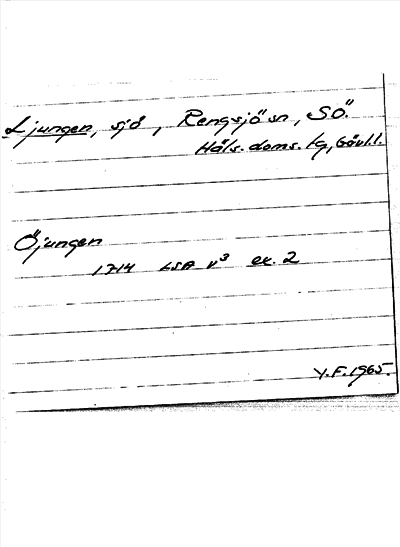 Ljungen, sjö, Rengsjö sn, SÖ.
Häls. doms. tg, Gävl.l.
Öjungen
1714 LSA V³ ex. 2
Y.F. 1965.